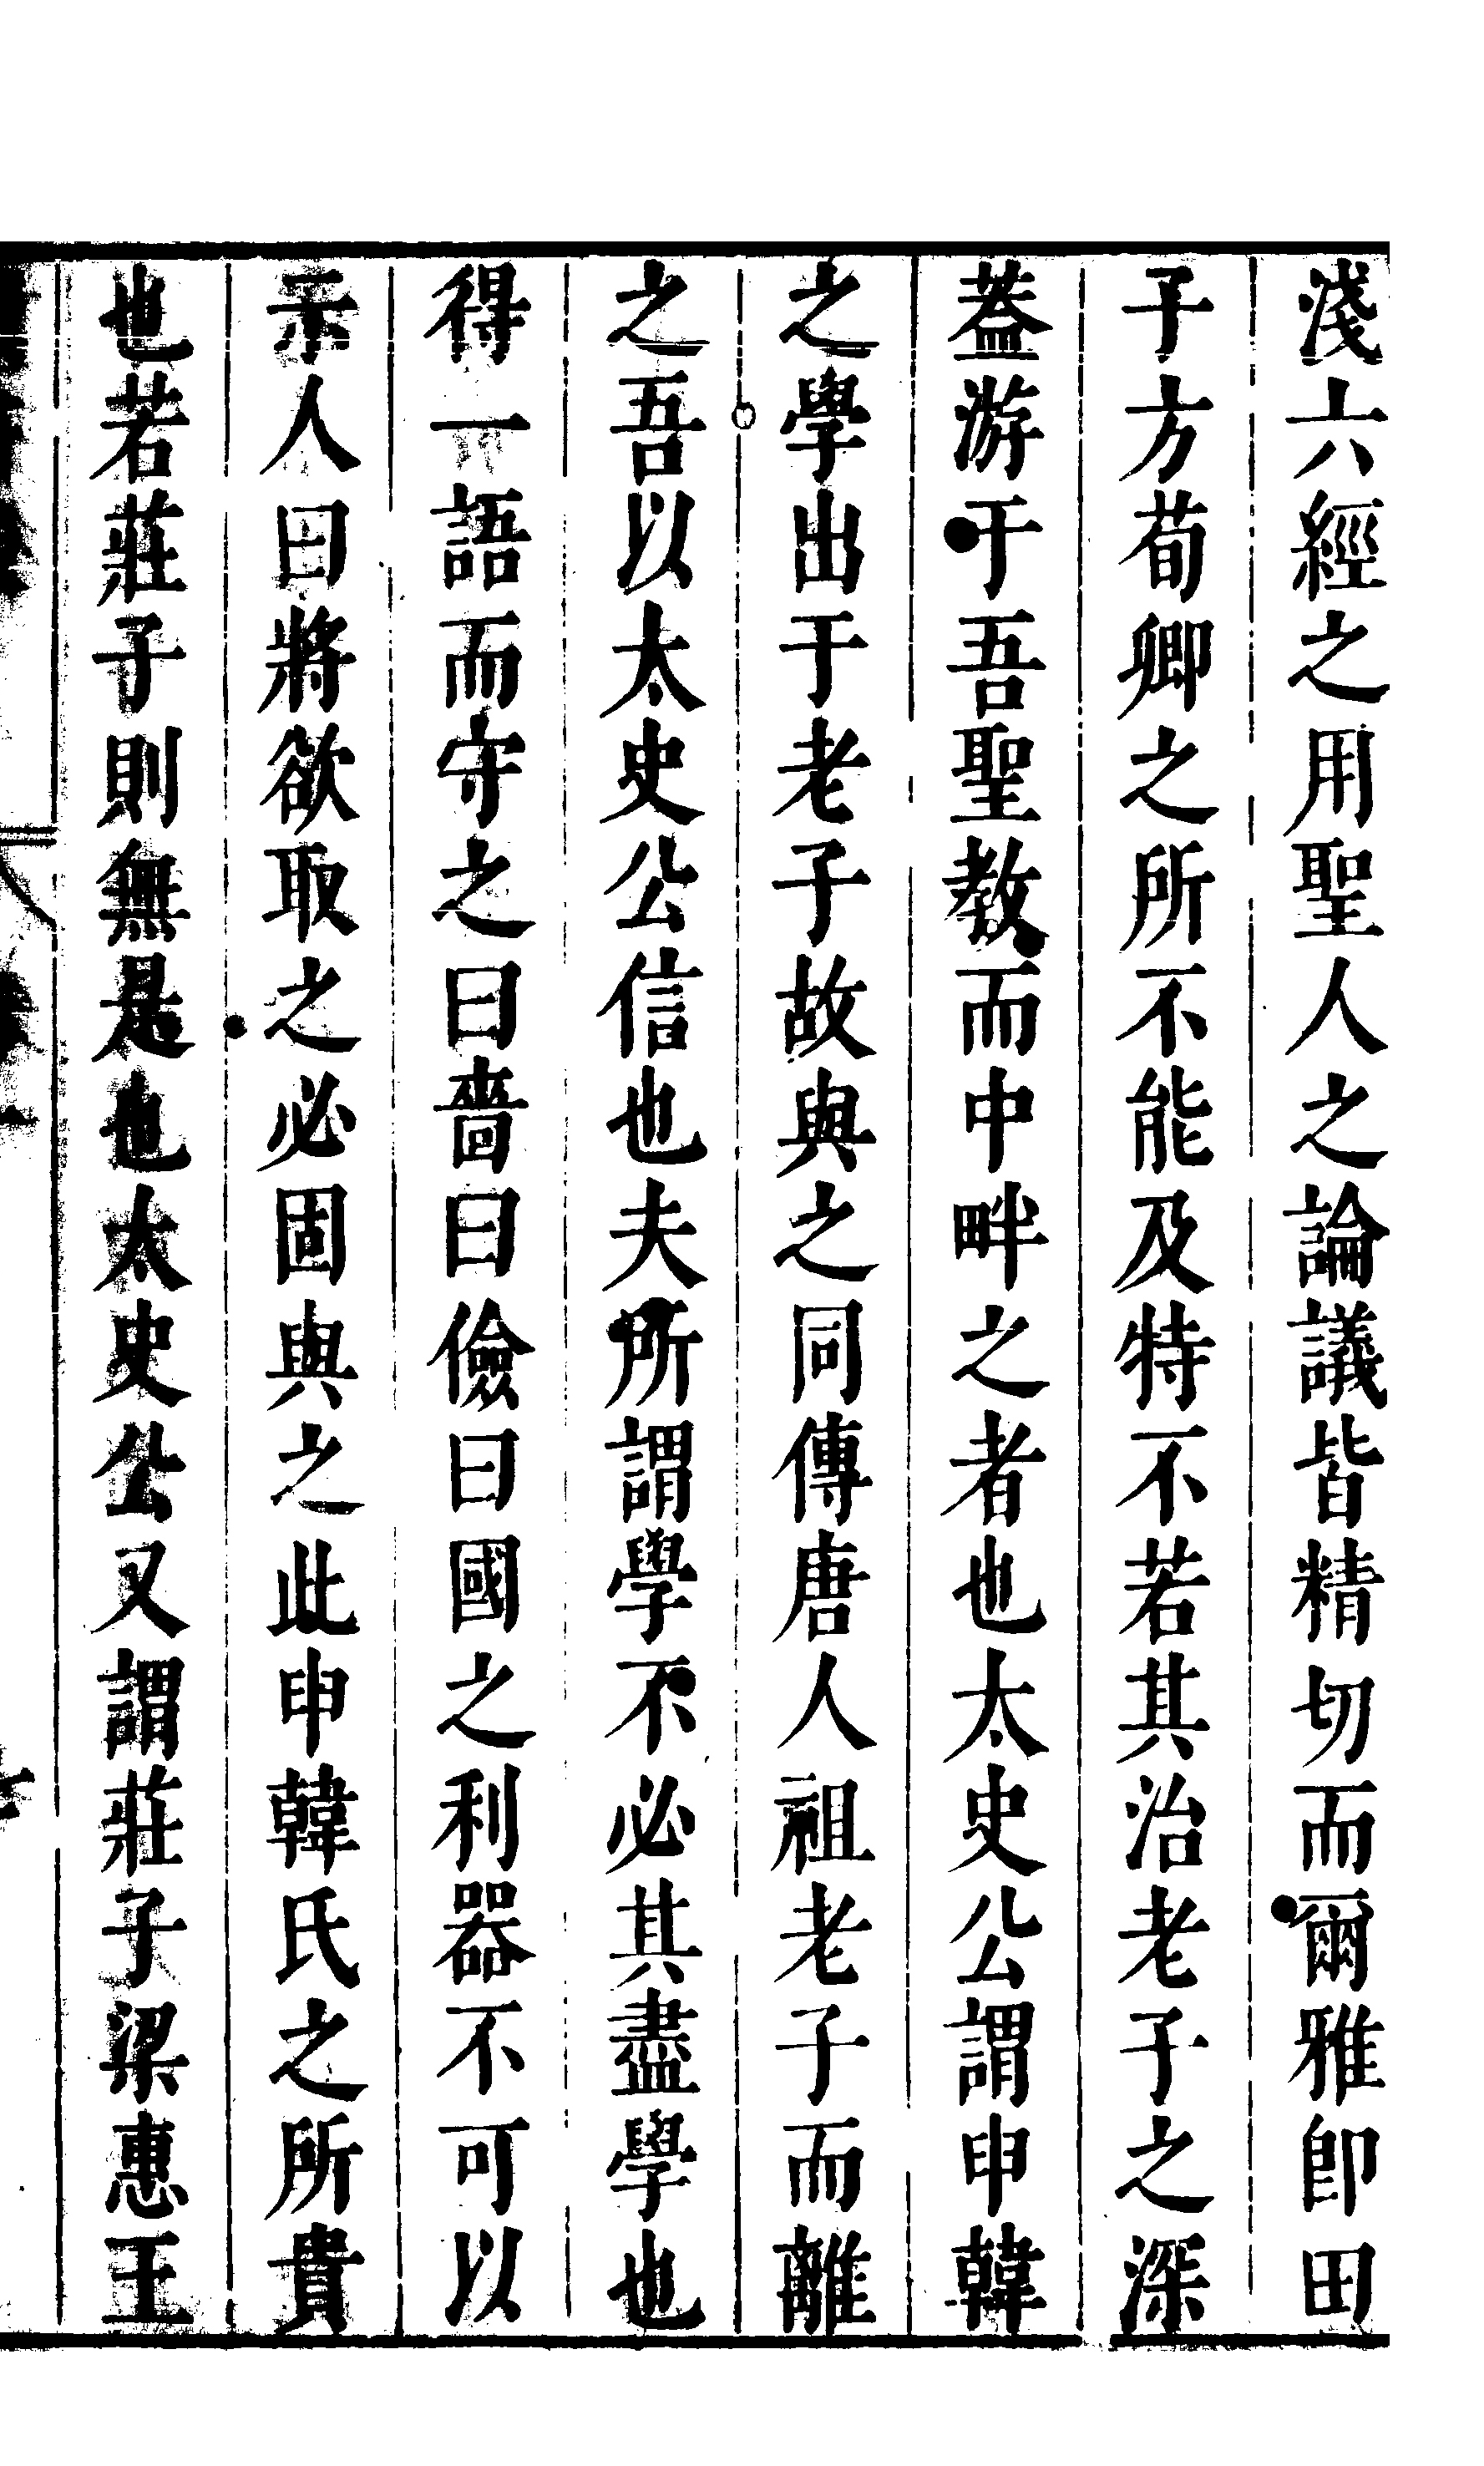 淺六經之用聖人之論議皆精切而爾雅即田
子方荀卿之所不能及特不若其治老子之深
葢游于吾聖教而中畔之者也太史公謂申韓
之學出于老子故與之同傳唐人祖老子而離
之吾以太史公信也夫所謂學不必其盡學也
得一語而守之曰嗇曰儉曰國之利器不可以
示人曰將欲取之必固與之此申韓氏之所貴
也若莊子則無是也太史公又謂莊子梁惠王